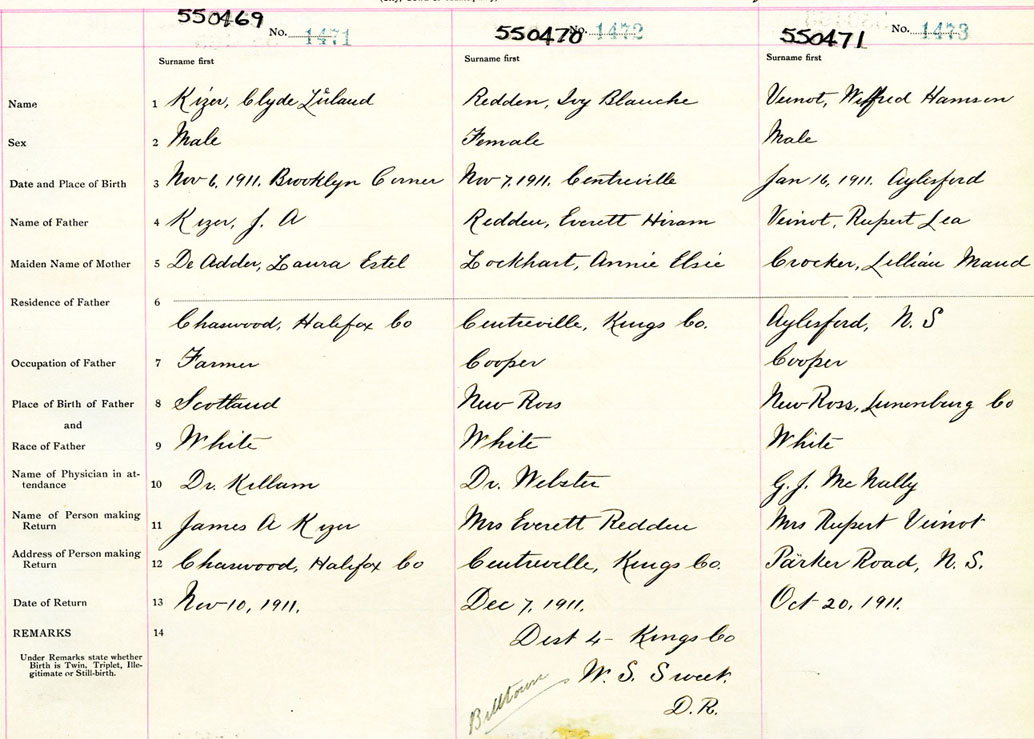 550469 No. 1471 550470 No. 1472 550471 No. 1473
Surname first Surname first Surname first
Name 1 Kizer, Clyde Redden, Ivy Blanche Veinot, Wilfred
Sex 2 Male Female Male
Date and Place of Birth 3 Nov 6, 1911. Brooklyn Corner Nov 7, 1911. Centreville Jan 16, 1911. Aylesford
Name of Father 4 Kizer, J. A Redden, Everett Hiram Veinot, Rupert Lea
Maiden Name of Mother 5 De Adder, Laura Estel Lockhart, Annie Elsie Crocker, Lillian Maud
Residence of Father 6
Chaswood, Halifax Co Centreville, Kings Co. Aylesford, N. S
Occupation of Father 7 Farmer Cooper Cooper
Place of Birth of Father 8 Scotland New Ross New Ross, Lunenburg Co
and
Race of Father 9 White White White
Name of Physician in at-
tendance 10 Dr. Killam Dr. Webster G. J. McNally
Name of Person making
Return 11 James A Kizer Mrs Everett Redden Mrs Rupert Veinot
Address of Person making
Return 12 Chaswood, Halifax Co Centreville, Kings Co. Parker Road, N. S.
Date of Return 13 Nov 10, 1911. Dec 7, 1911. Oct 20, 1911.
REMARKS 14 Dist 4 - Kings Co
Under Remarks state whether
Birth is Twin, Triplet, Ille-
gitimate or Still-birth.
W. S. Sweet.
D. R.
Billtown